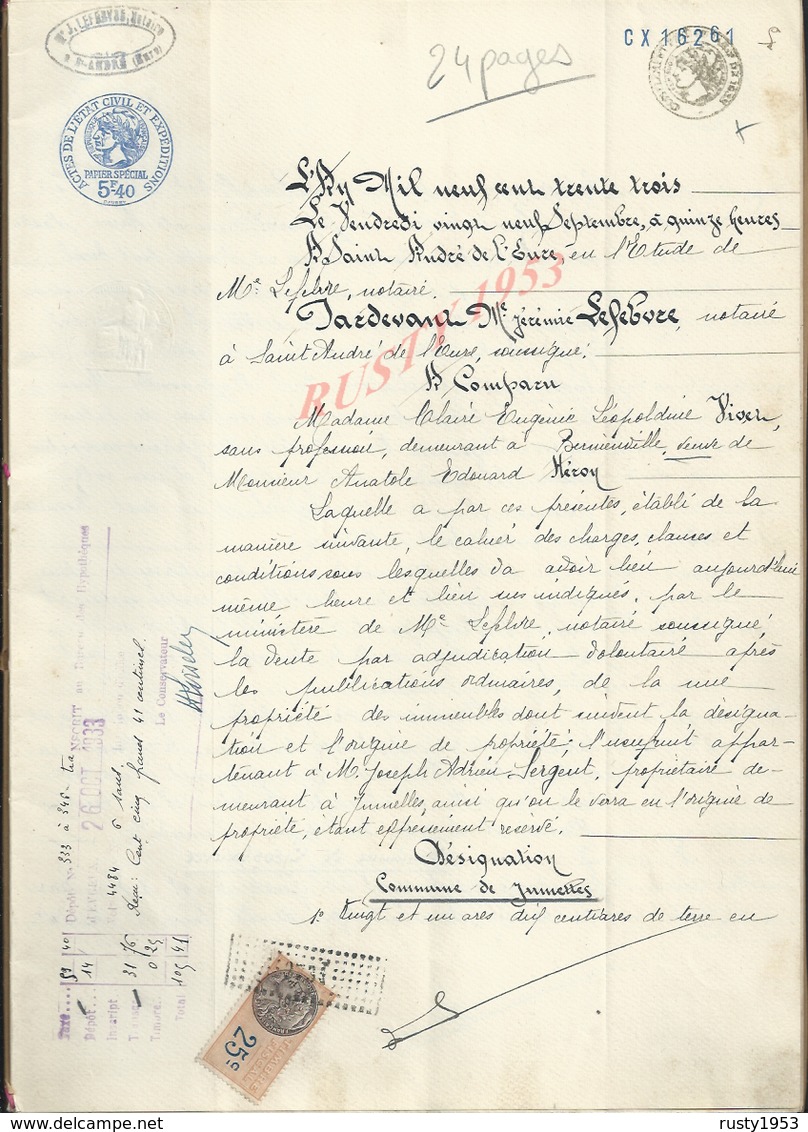 Me J. LEFEBVRE, Notaire
à St-ANDRÉ (Eure)
24 pages
CX16261
ACTES DE L'ETAT CIVIL ET EXPEDITIONS
PAPIER SPÉCIAL
5F40
L'An Mil neuf cent trente trois
Le Vendredi vingt neuf Septembre, à quinze heures
A Saint André de l'Eure, en l'Etude de
Me Lefebvre, notaire.
Pardevant Me Jérémie Lefebvre, notaire
à Saint André de l'Eure, soussigné.
A Comparu
Madame Claire Eugénie Léopoldine Vivet,
sans profession, demeurant à Bernienville, veuve de
Monsieur Anatole Edouard Héroy
Laquelle a par ces présentes, établi de la
manière suivante, le cahier des charges, clauses et
conditions sous lesquelles va avoir lieu aujourd'hui
même heure et lieu sus indiqués, par le
ministère de Me Lefebvre, notaire soussigné,
la vente par adjudication volontaire après
les publications ordinaires, de la nue
propriété des immeubles dont suivent la désigna-
tion et l'origine de propriété; l'usufruit appar-
tenant à M. Joseph Adrien Sergent, propriétaire de-
meurant à Jumelles, ainsi qu'on le verra en l'origine de
propriété, étant expressément réservé.
Désignation
Commune de Jumelles
1° Vingt et un ares dix centiares de terre en
RUSTY 1953
INSCRIT au Bureau des Hypothèques
26 OCT 1933
Dépôt No 333 à 346
4484
Reçu: Cent cinq francs 41 centimes.
Le Conservateur
Taxe.... 59 40
Dépôt... 14
Inscript
Transc. 31 76
Timbre. 0 25
Total 105 41
25c
rusty1953